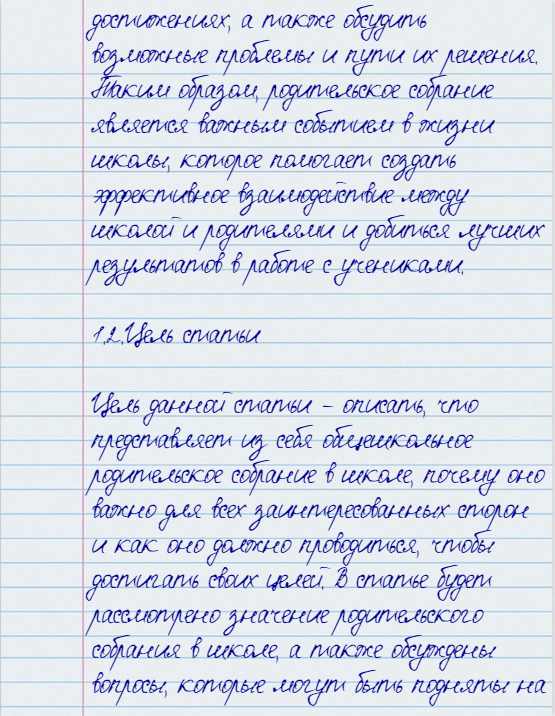 достижениях, а также обсудить
возможные проблемы и пути их решения.
Таким образом, родительское собрание
является важным событием в жизни
школы, которое помогает создать
эффективное взаимодействие между
школой и родителями и добиться лучших
результатов в работе с учениками.
1.2.Цель статьи
Цель данной статьи – описать, что
представляет из себя общешкольное
родительское собрание в школе, почему оно
важно для всех заинтересованных сторон
и как оно должно проводиться, чтобы
достигать своих целей. В статье будет
рассмотрено значение родительского
собрания в школе, а также обсуждены
вопросы, которые могут быть подняты на